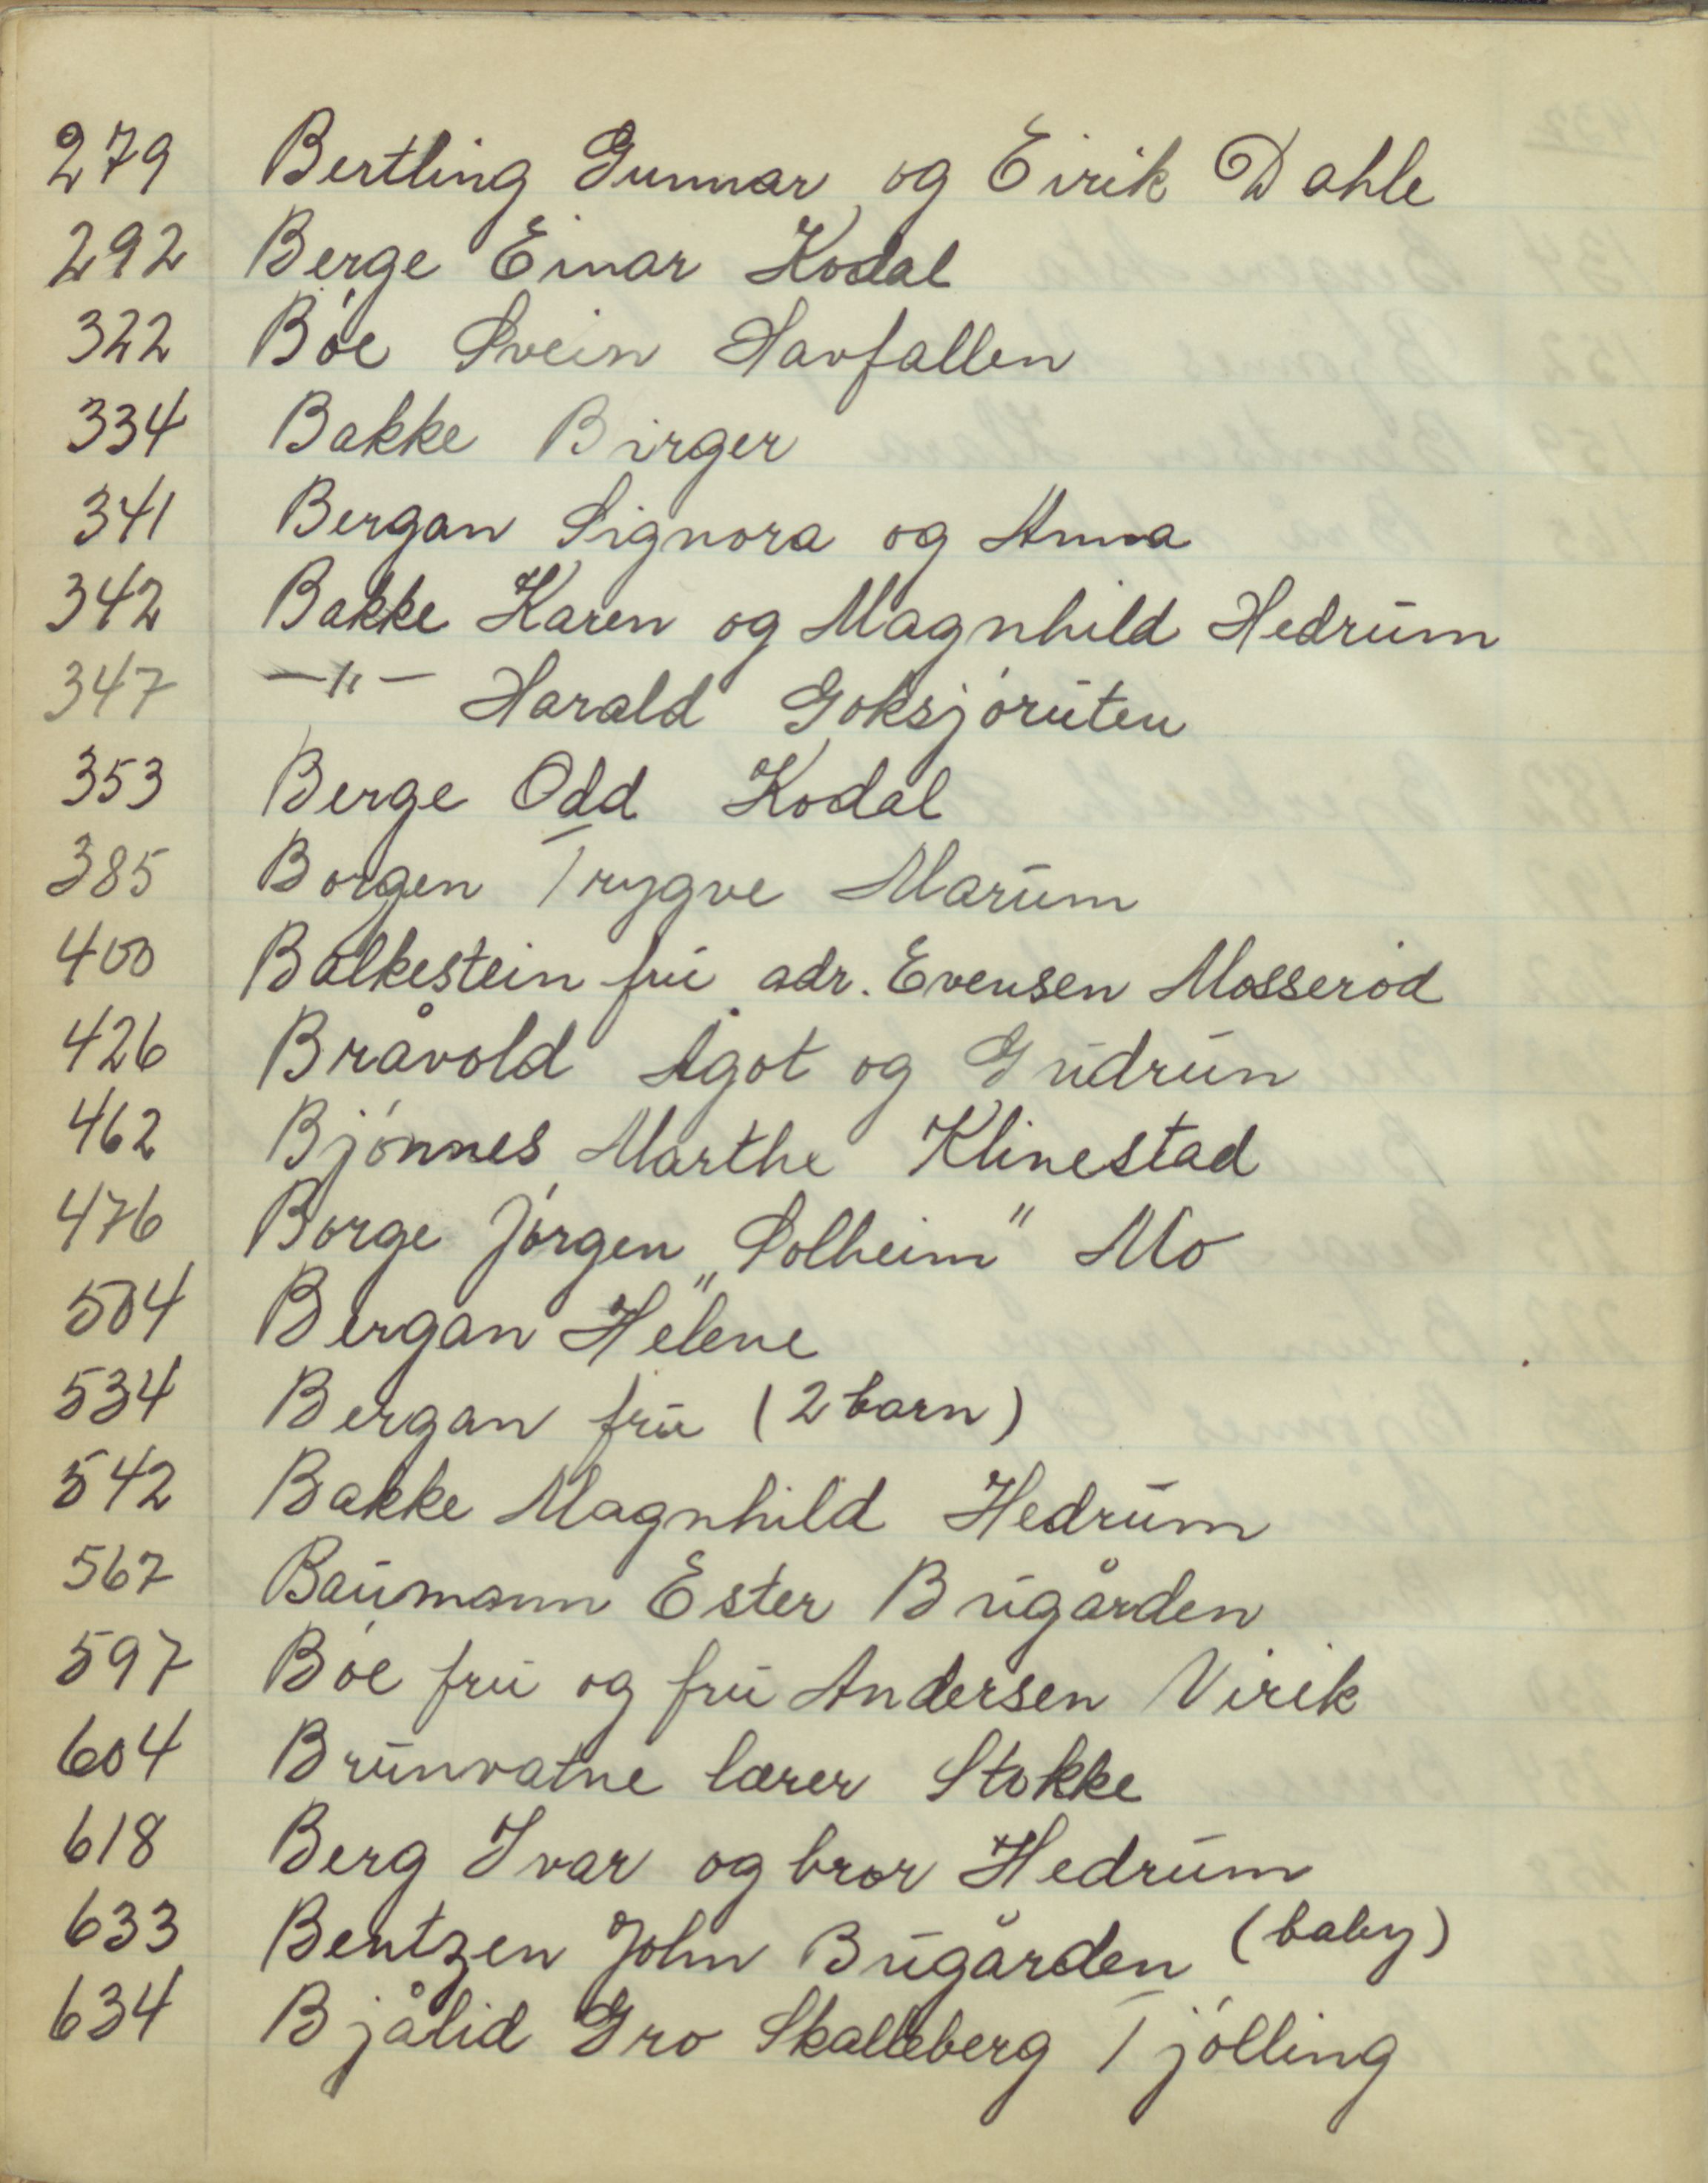 279 Bertling Gunnar og Eirik Dahle
292 Berge Einar Kodal
322 Bóe Svein Havfallen
334 Bakke Birger
341 Bergan Signora og Anna
342 Bakke Karen og Magnhild Hedrum
347 —"— Harald Goksjóruten
353 Berge Odd Kodal
385 Borgen Trygve Marum
400 Balkestein fru adr. Evensen Mosseród
426 Bråvold Ågot og Gudrun
462 Bjónnes Marthe Klinestad
476 Borge Jórgen „Solheim" Mo
504 Bergan Helene
534 Bergan fru (2 barn)
542 Bakke Magnhild Hedrum
567 Baumann Ester Bugården
597 Bóe fru og fru Andersen Virik
604 Brunvatne lærer Stokke
618 Berg Ivar og bror Hedrum
633 Bentzen John Bugården (baby)
634 Bjålid Gro Skalleberg Tjólling